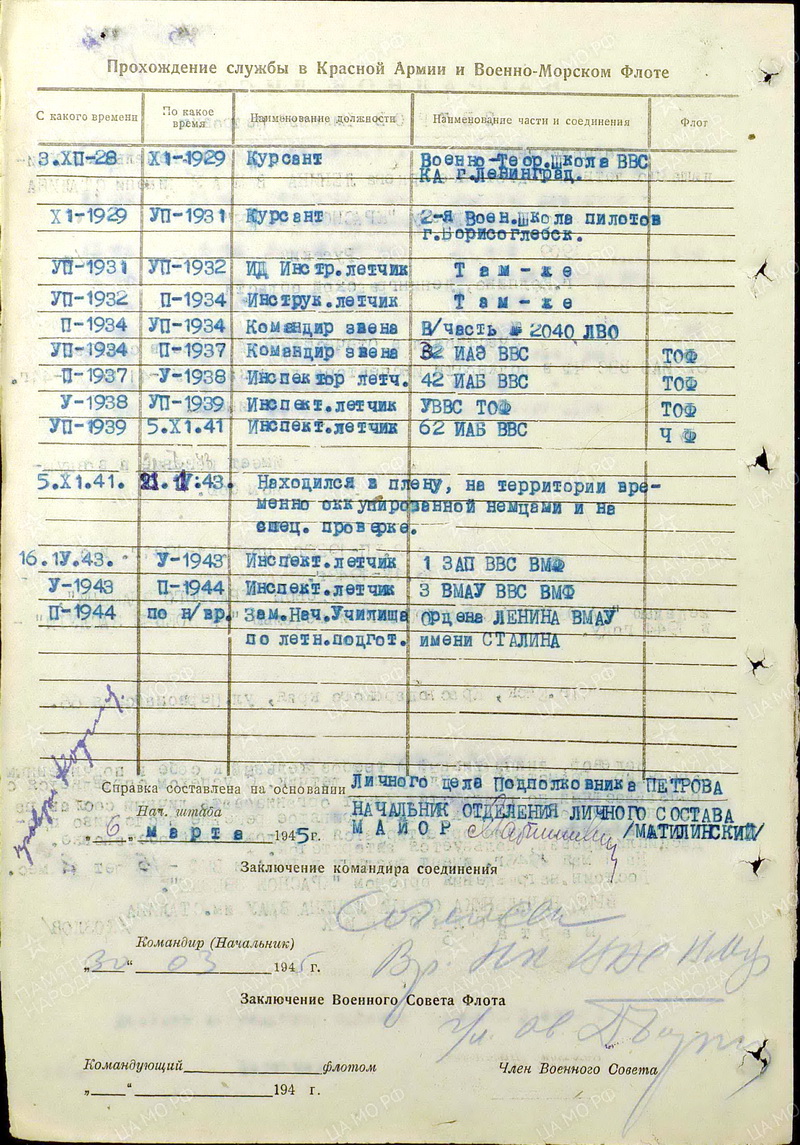 Прохождение службы в Красной Армии и Военно-Морском Флоте
С какого времени По какое время Наименование должности Наименование части и соединения Флот
3.ХП-28 Х1-1929 Курсант Военно-Теор.школа ВВС
КА г.Ленинград.
Х1-1929 УП-1931 Курсант 2-я Воен.школа пилотов
г.Борисоглебск.
УП-1931 УП-1932 ИД Инстр.летчик Т а м - ж е
УП-1932 П-1934 Инструк.летчик Т а м - ж е
П-1934 УП-1934 Командир звена В/часть № 2040 ЛВО
УП-1934 П-1937 Командир звена 32 ИАЭ ВВС ТОФ
П-1937 У-1938 Инспектор летч. 42 ИАБ ВВС ТОФ
У-1938 УП-1939 Инспект.летчик УВВС ТОФ ТОФ
УП-1939 5.Х1.41 Инспект.летчик 62 ИАБ ВВС Ч Ф
5.Х1.41. Находился в плену, на территории вре-
менно оккупированной немцами и на
спец. проверке.
16.1У.43. У-1943 Инспект.летчик 1 ЗАП ВВС ВМФ
У-1943 П-1944 Инспект.летчик 3 ВМАУ ВВС ВМФ
П-1944 по н/вр. Зам.Нач.Училища Ордена ЛЕНИНА ВМАУ
по летн.подгот. имени СТАЛИНА
Справка составлена на основании Личного дела Подполковника ПЕТРОВА
Нач. штаба НАЧАЛЬНИК ОТДЕЛЕНИЯ ЛИЧНОГО СОСТАВА
„6“ м а р т а 1945г. М А Й О Р /МАТИЛИНСКИЙ/
Заключение командира соединения
Командир (Начальник)
„30“ 03 194 г.
Заключение Военного Совета Флота
Командующий флотом Член Военного Совета
„ “ 194 г.